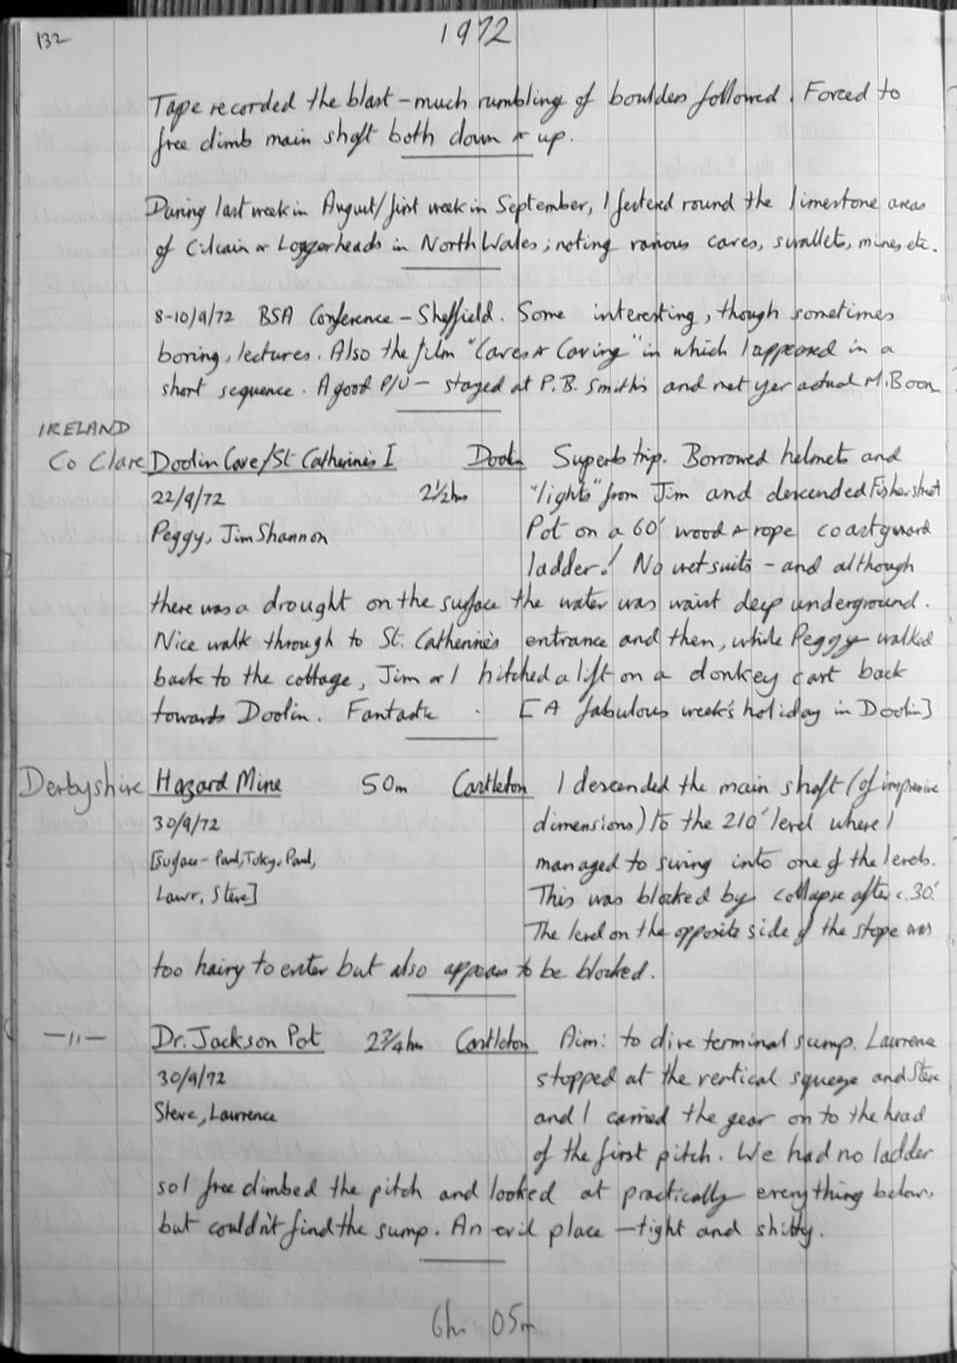 132
1972
Tape recorded the blast – much rumbling of boulders followed. Forced to
free climb main shaft both down & up.
During last week in August/first week in September, I festered round the limestone areas
of Cilcain & Loggerheads in North Wales; noting various caves, swallets, mines, etc.
8-10/9/72 BSA Conference – Sheffield. Some interesting, though sometimes
boring, lectures. Also the film "Caves & Caving" in which I appeared in a
short sequence. A good P/U – stayed at P.B. Smith's and met yer actual M. Boon
IRELAND
Co Clare Doolin Cave/St Catherine's I Dooln Superb trip. Borrowed helmets and
22/9/72 2½hs "lights" from Jim and descended Fisherstreet
Peggy, Jim Shannon Pot on a 60' wood & rope coastguard
ladder! No wetsuits – and although
there was a drought on the surface the water was waist deep underground.
Nice walk through to St. Catherine's entrance and then, while Peggy walked
back to the cottage, Jim & I hitched a lift on a donkey cart back
towards Doolin. Fantastic. [A fabulous week's holiday in Doolin]
Derbyshire Hazard Mine 50m Castleton I descended the main shaft (of impressive
30/9/72 dimensions) to the 210' level where I
[Surface – Paul, Toky, Paul, managed to swing into one of the levels.
Lawr, Steve] This was blocked by collapse after c.30'.
The level on the opposite side of the stope was
too hairy to enter but also appears to be blocked.
—"— Dr. Jackson Pot 2¾hs Castleton Aim: to dive terminal sump. Lawrence
30/9/72 stopped at the vertical squeeze and Steve
Steve, Lawrence and I carried the gear on to the head
of the first pitch. We had no ladder
so I free climbed the pitch and looked at practically everything below,
but couldn't find the sump. An evil place – tight and shitty.
6hr 05m